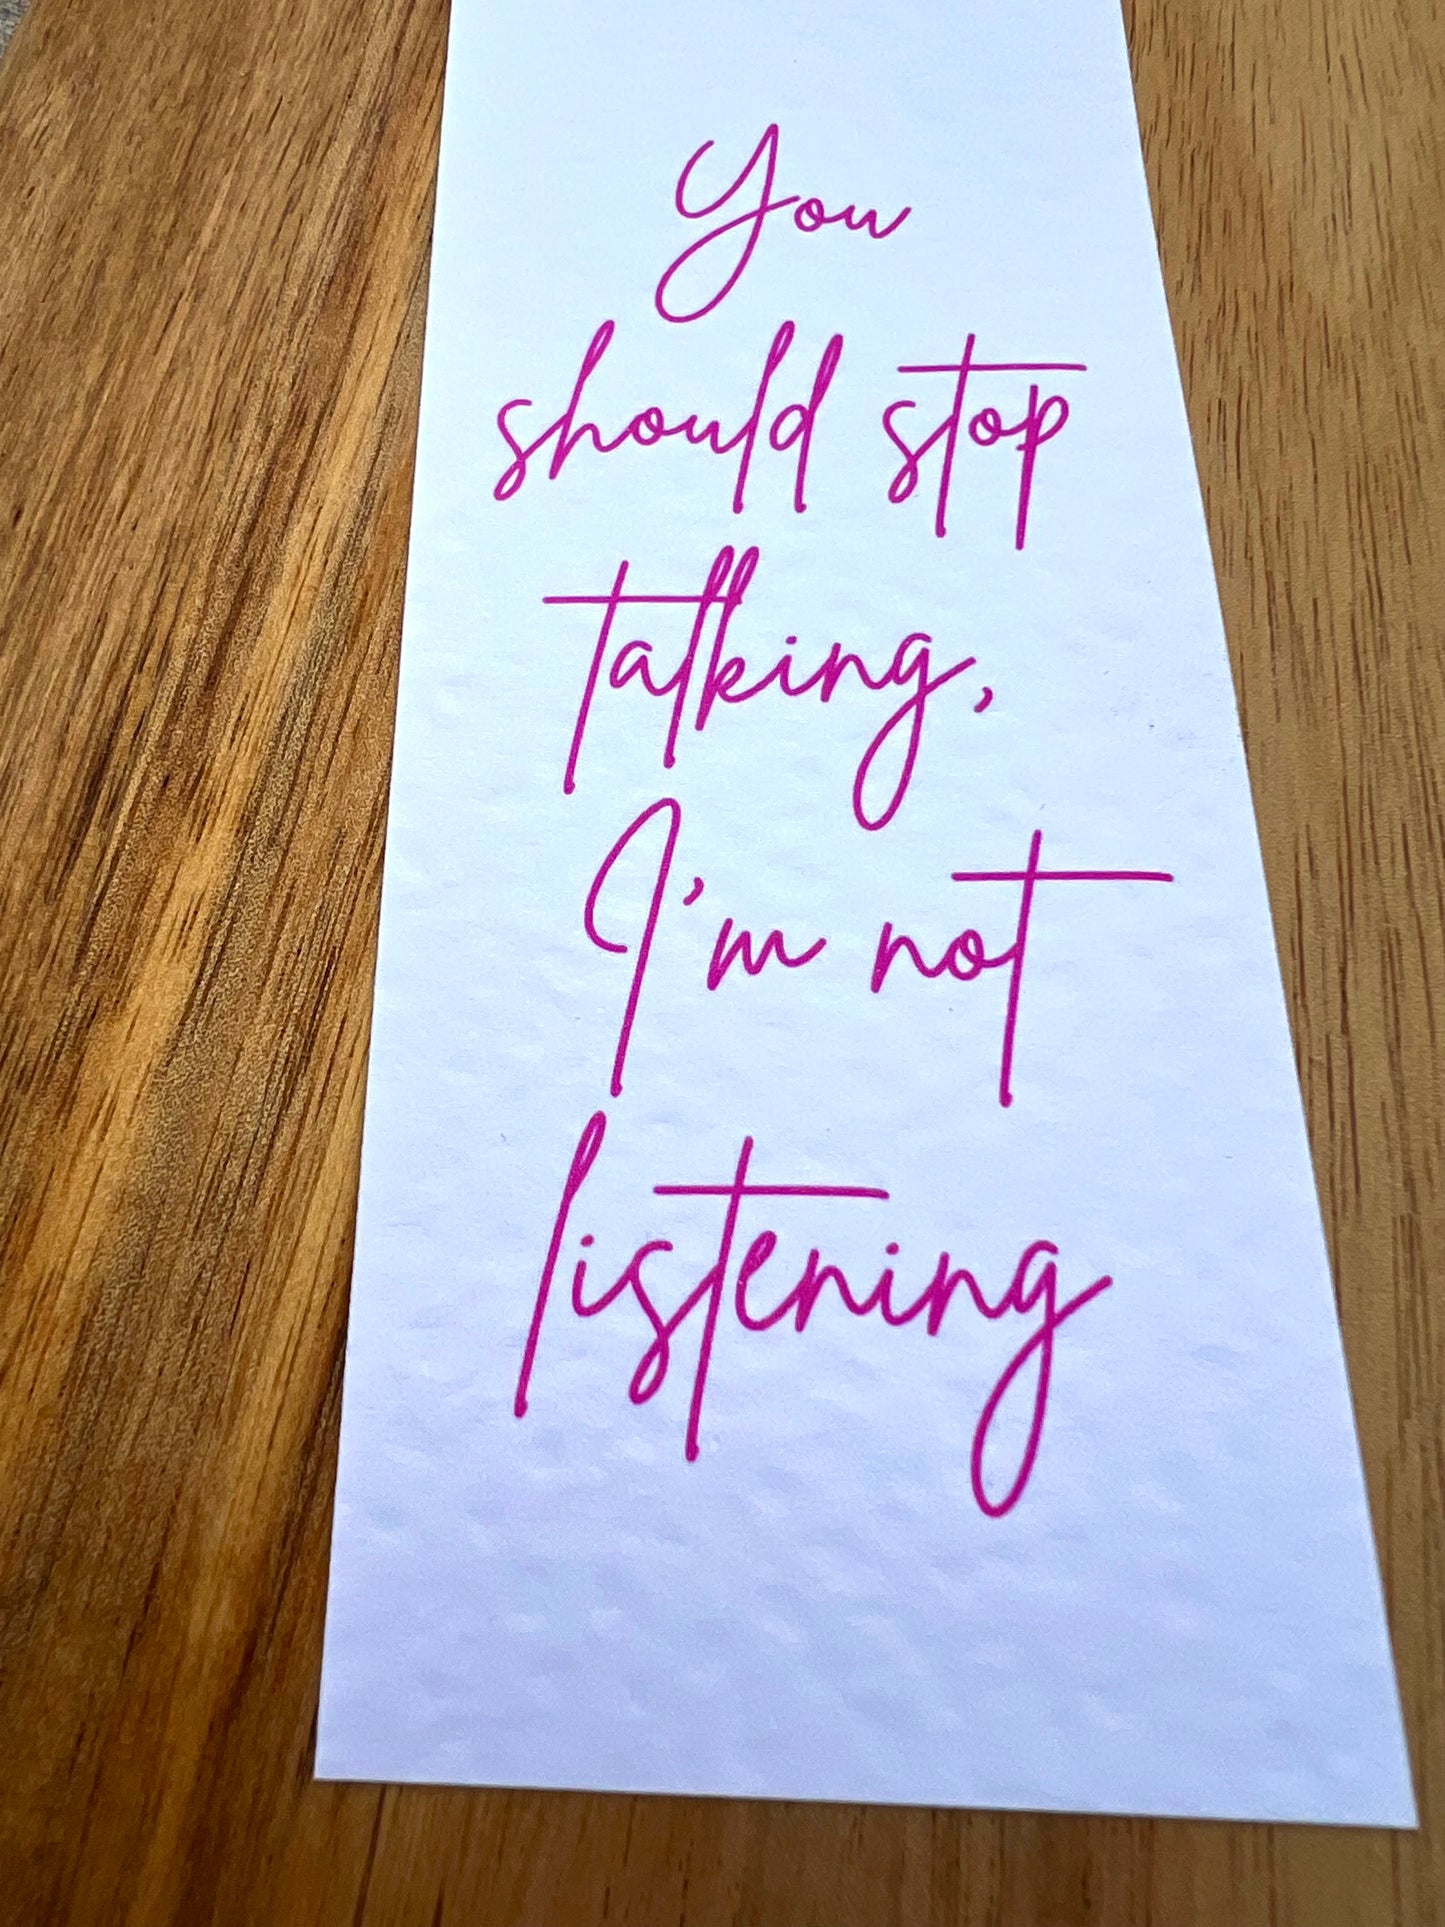 You
should stop
talking,
I'm not
listening